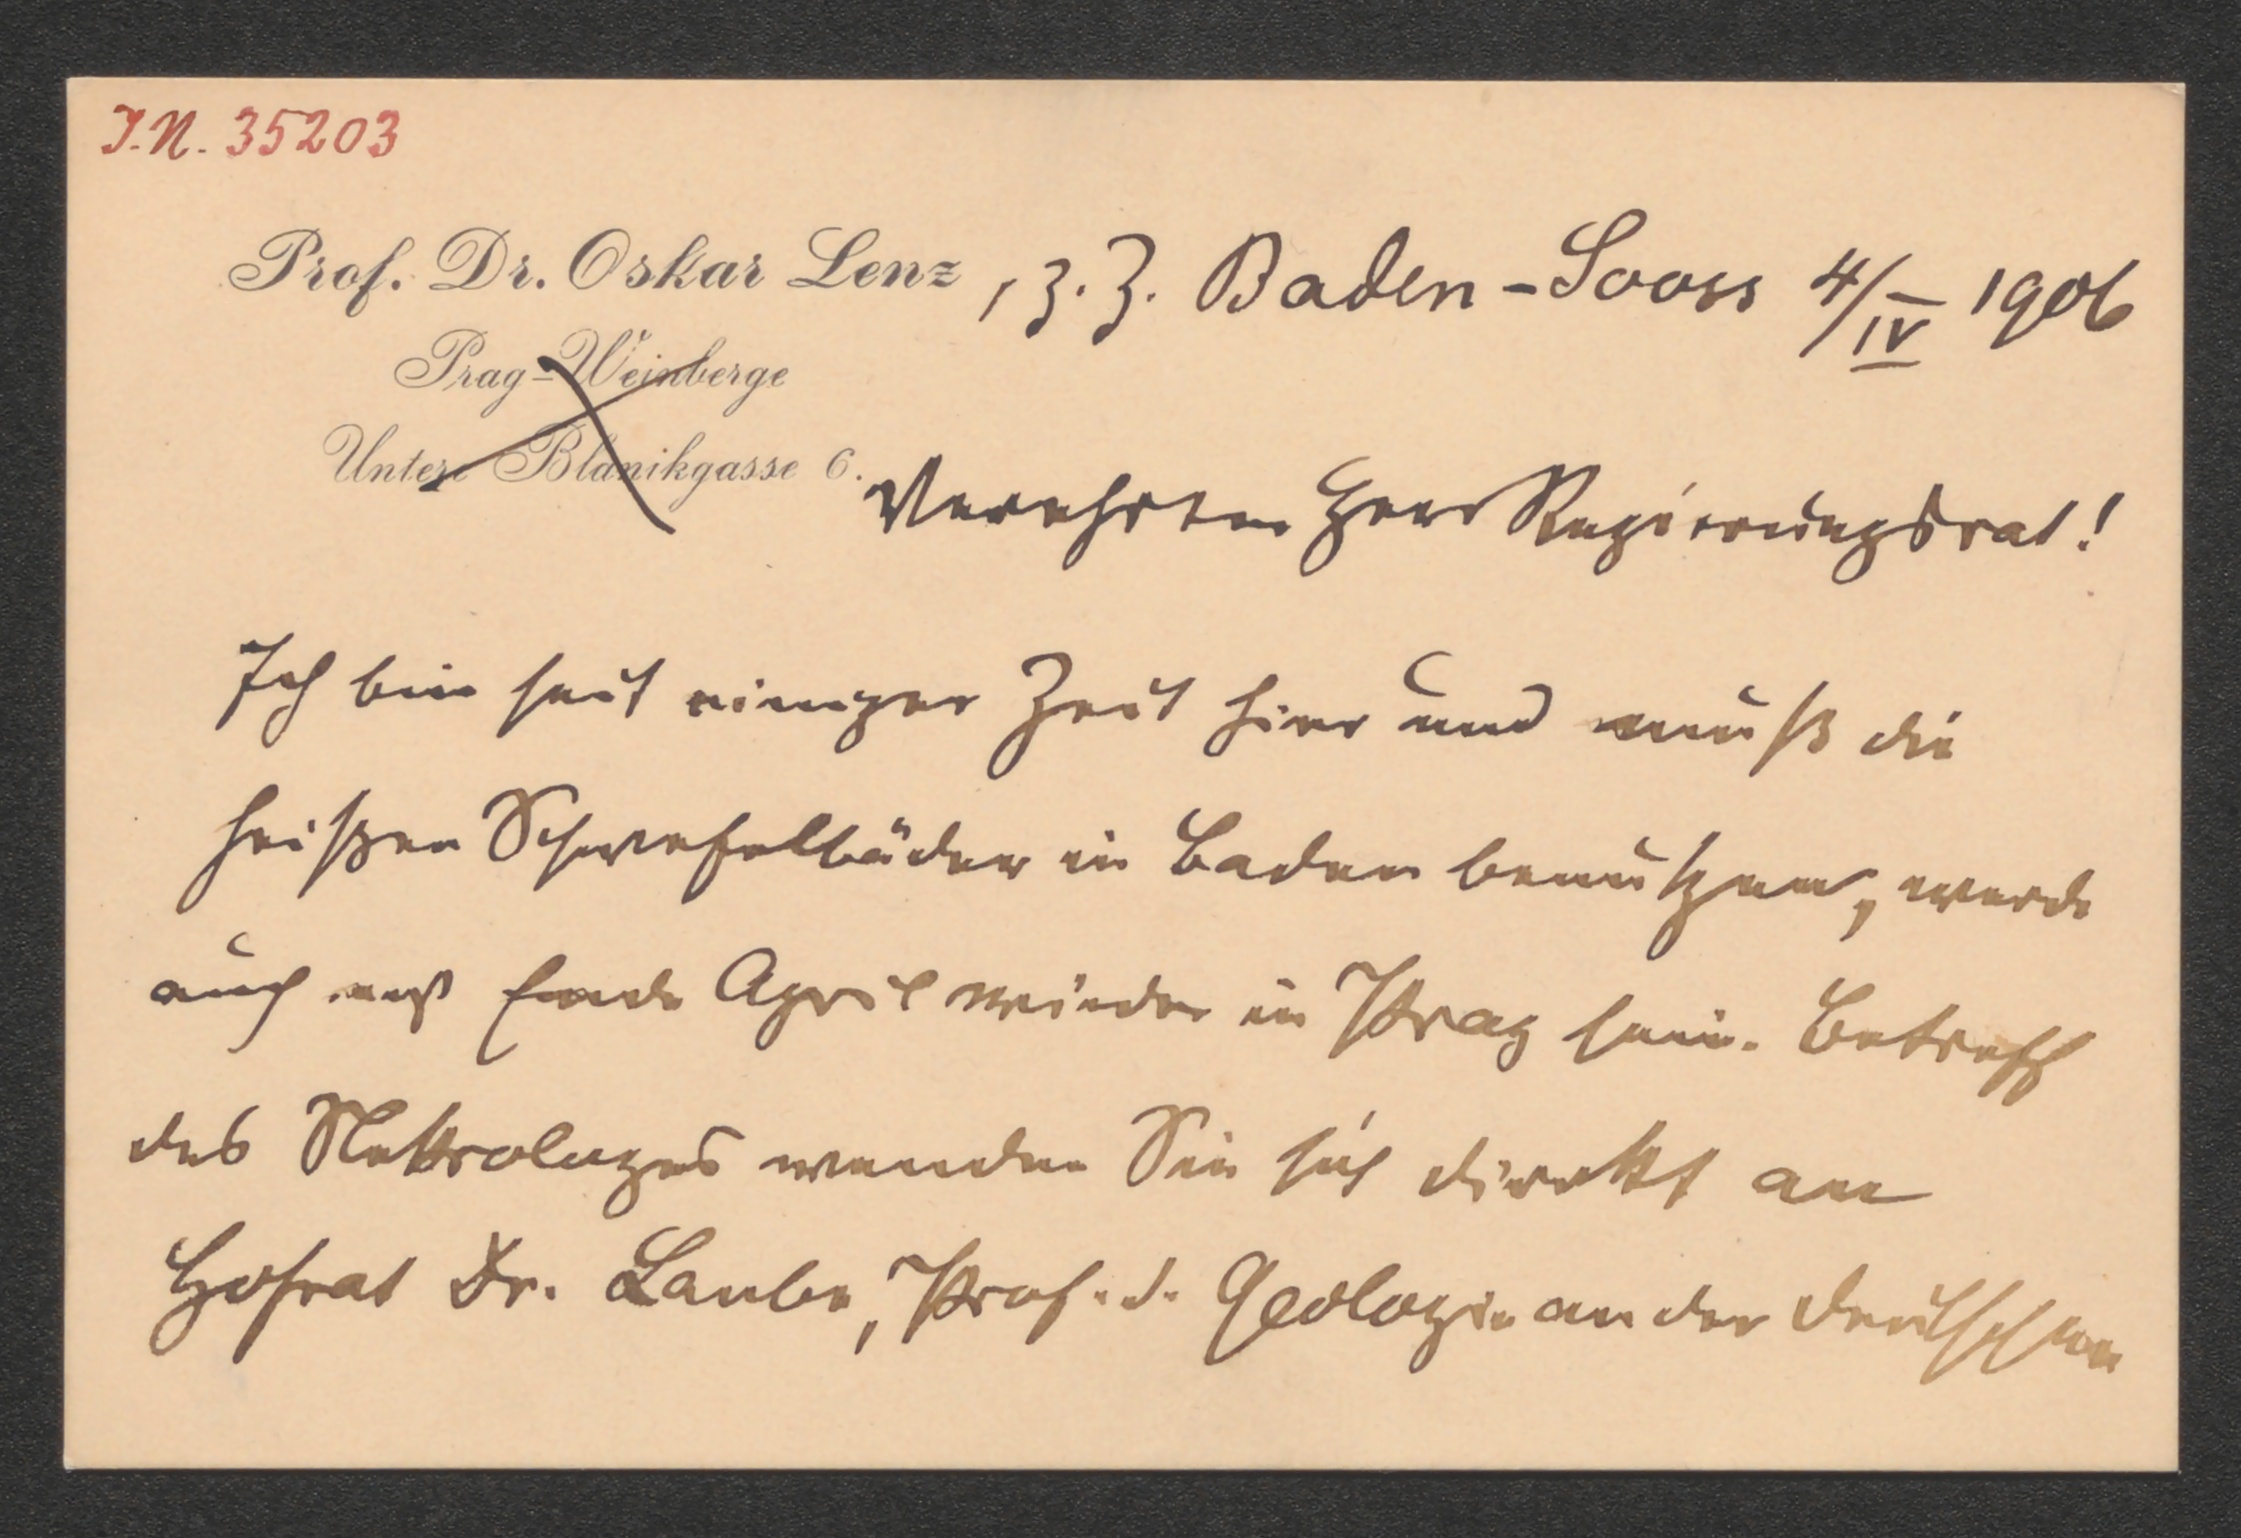 I.N. 35203
Prof. Dr. Oskar Lenz, z. Z. Baden-Sooss 4/IV 1906
Prag-Weinberge
Untere Blanikgasse 6.
Verehrter Herr Regierungsrat!
Ich bin seit einiger Zeit hier und muß die
heißen Schwefelbäder in Baden benutzen, werde
auch erst Ende April wieder in Prag sein. Betreff
des Nekrologes wenden Sie sich direkt an
Hofrat Dr. Laube, Prof. d. Geologie an der deutschen